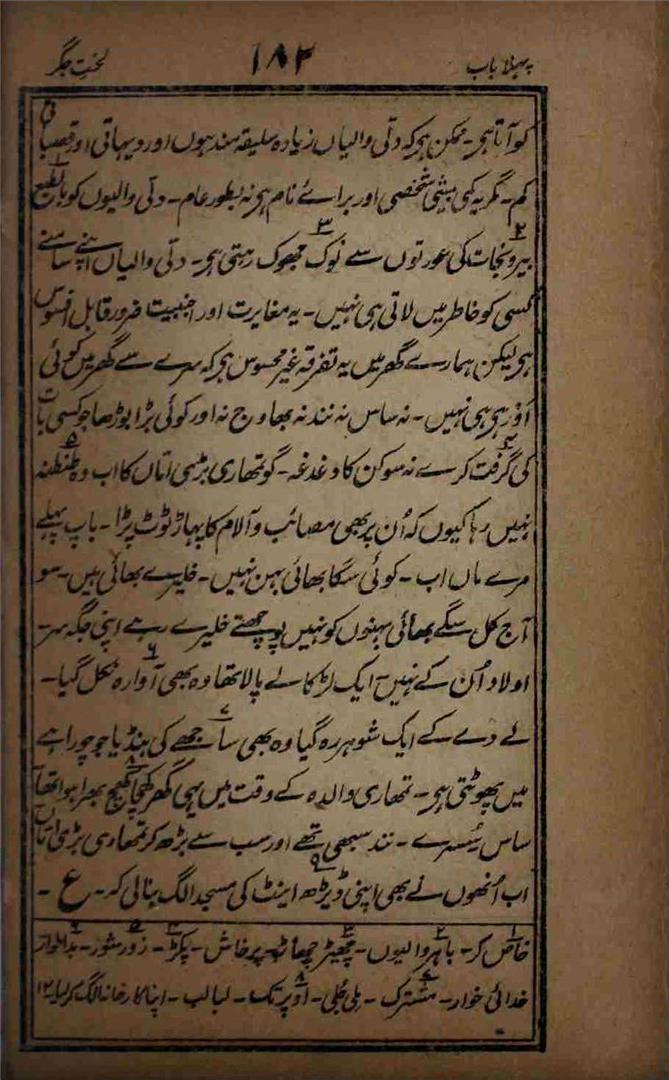 پہلا باب ۱۸۲ لختِ جگر
کو آتا ہی۔ ممکن ہی کہ دلّی والیاں زیادہ سلیقہ مند ہوں اور دیہاتی اور قصباتی
کم۔ مگر یہ کمی بیشی شخصی اور برائے نام ہی نہ بطور عام۔ دلّی والیوں کو بالطبع
بیرونجات کی عورتوں سے نوک جھوک رہتی ہی۔ دلّی والیاں اپنے سامنے
کسی کو خاطر میں لاتی ہی نہیں۔ یہ مغایرت اور اجنبیت ضرور قابل افسوس
ہی لیکن ہمارے گھر میں یہ تفرقہ غیر محسوس ہی کہ سرے سے گھر میں کوئی
اَور ہی ہی نہیں۔ نہ ساس نہ نند نہ بھاوج نہ اور کوئی بڑا بوڑھا جو کسی بات
کی گرفت کرے نہ سوکن کا دغدغہ۔ گو تمھاری بڑی اماں کا اب وہ طنطنہ
نہیں رہا کیوں کہ اُن پر بھی مصائب و آلام کا پہاڑ ٹوٹ پڑا۔ باپ پہلے
مرے ماں اب۔ کوئی سگا بھائی بہن نہیں۔ خلیرے بھائی ہیں۔ سو
آج کل سگے بھائی بہنوں کو نہیں پوچھتے خلیرے رہے اپنی جگہ پر۔
اولاد اُن کے نہیں۔ ایک لڑکا لے پالا تھا وہ بھی آوارہ نکل گیا۔
لے دے کے ایک شوہر رہ گیا وہ بھی ساجھے کی ہنڈیا جو چوراہے
میں پھوٹتی ہی۔ تمھاری والدہ کے وقت میں یہی گھر کھچا کھچ بھرا ہوا تھا
ساس سُسرے۔ نند سبھی تھے اور سب سے بڑھ کر تمھاری بڑی اماں
اب اُنھوں نے بھی اپنی ڈیڑھ اینٹ کی مسجد الگ بنالی کہ۔ ع۔
خاص کر۔ باہر والیوں۔ چھیڑ چھاڑ پرخاش۔ پکڑ۔ زور شور۔ بداطوار
خدائی خوار۔ مشترک۔ ملی جلی۔ اوپر تک۔ لبالب۔ اپنا کارخانہ الگ کر لیا ۱۲